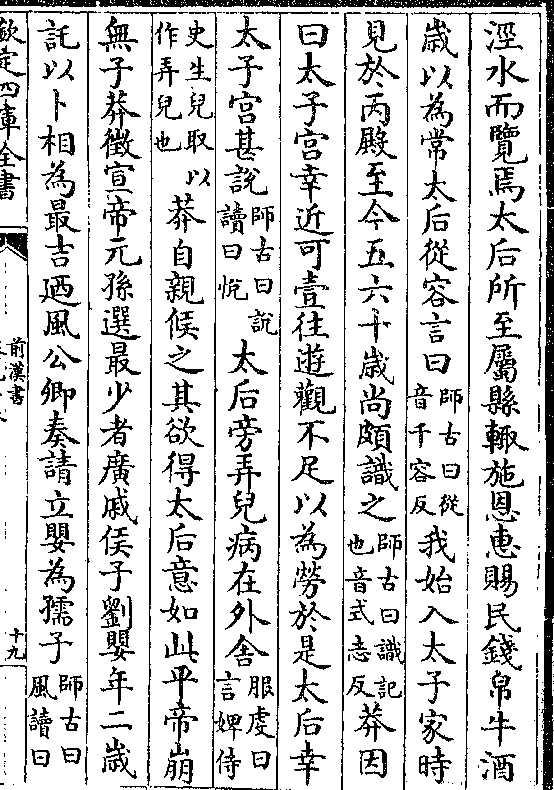 涇水而覽焉太后所至屬縣輙施恩惠賜民錢帛牛酒
歳以為常太后從容言曰師古曰從音千容反我始入太子家時
見於丙殿至今五六十歳尚頗識之師古曰識記也音式志反莽因
曰太子宮幸近可壹往遊觀不足以為勞於是太后幸
太子宮甚說師古曰說讀曰悅太后旁弄兒病在外舍服虔曰言婢侍
史生兒取以作弄兒也莽自親候之其欲得太后意如此平帝崩
無子莽徵宣帝元孫選最少者廣戚侯子劉嬰年二歳
託以卜相為最吉廼風公卿奏請立嬰為孺子師古曰風讀曰
欽定四庫全書
前漢書
十九